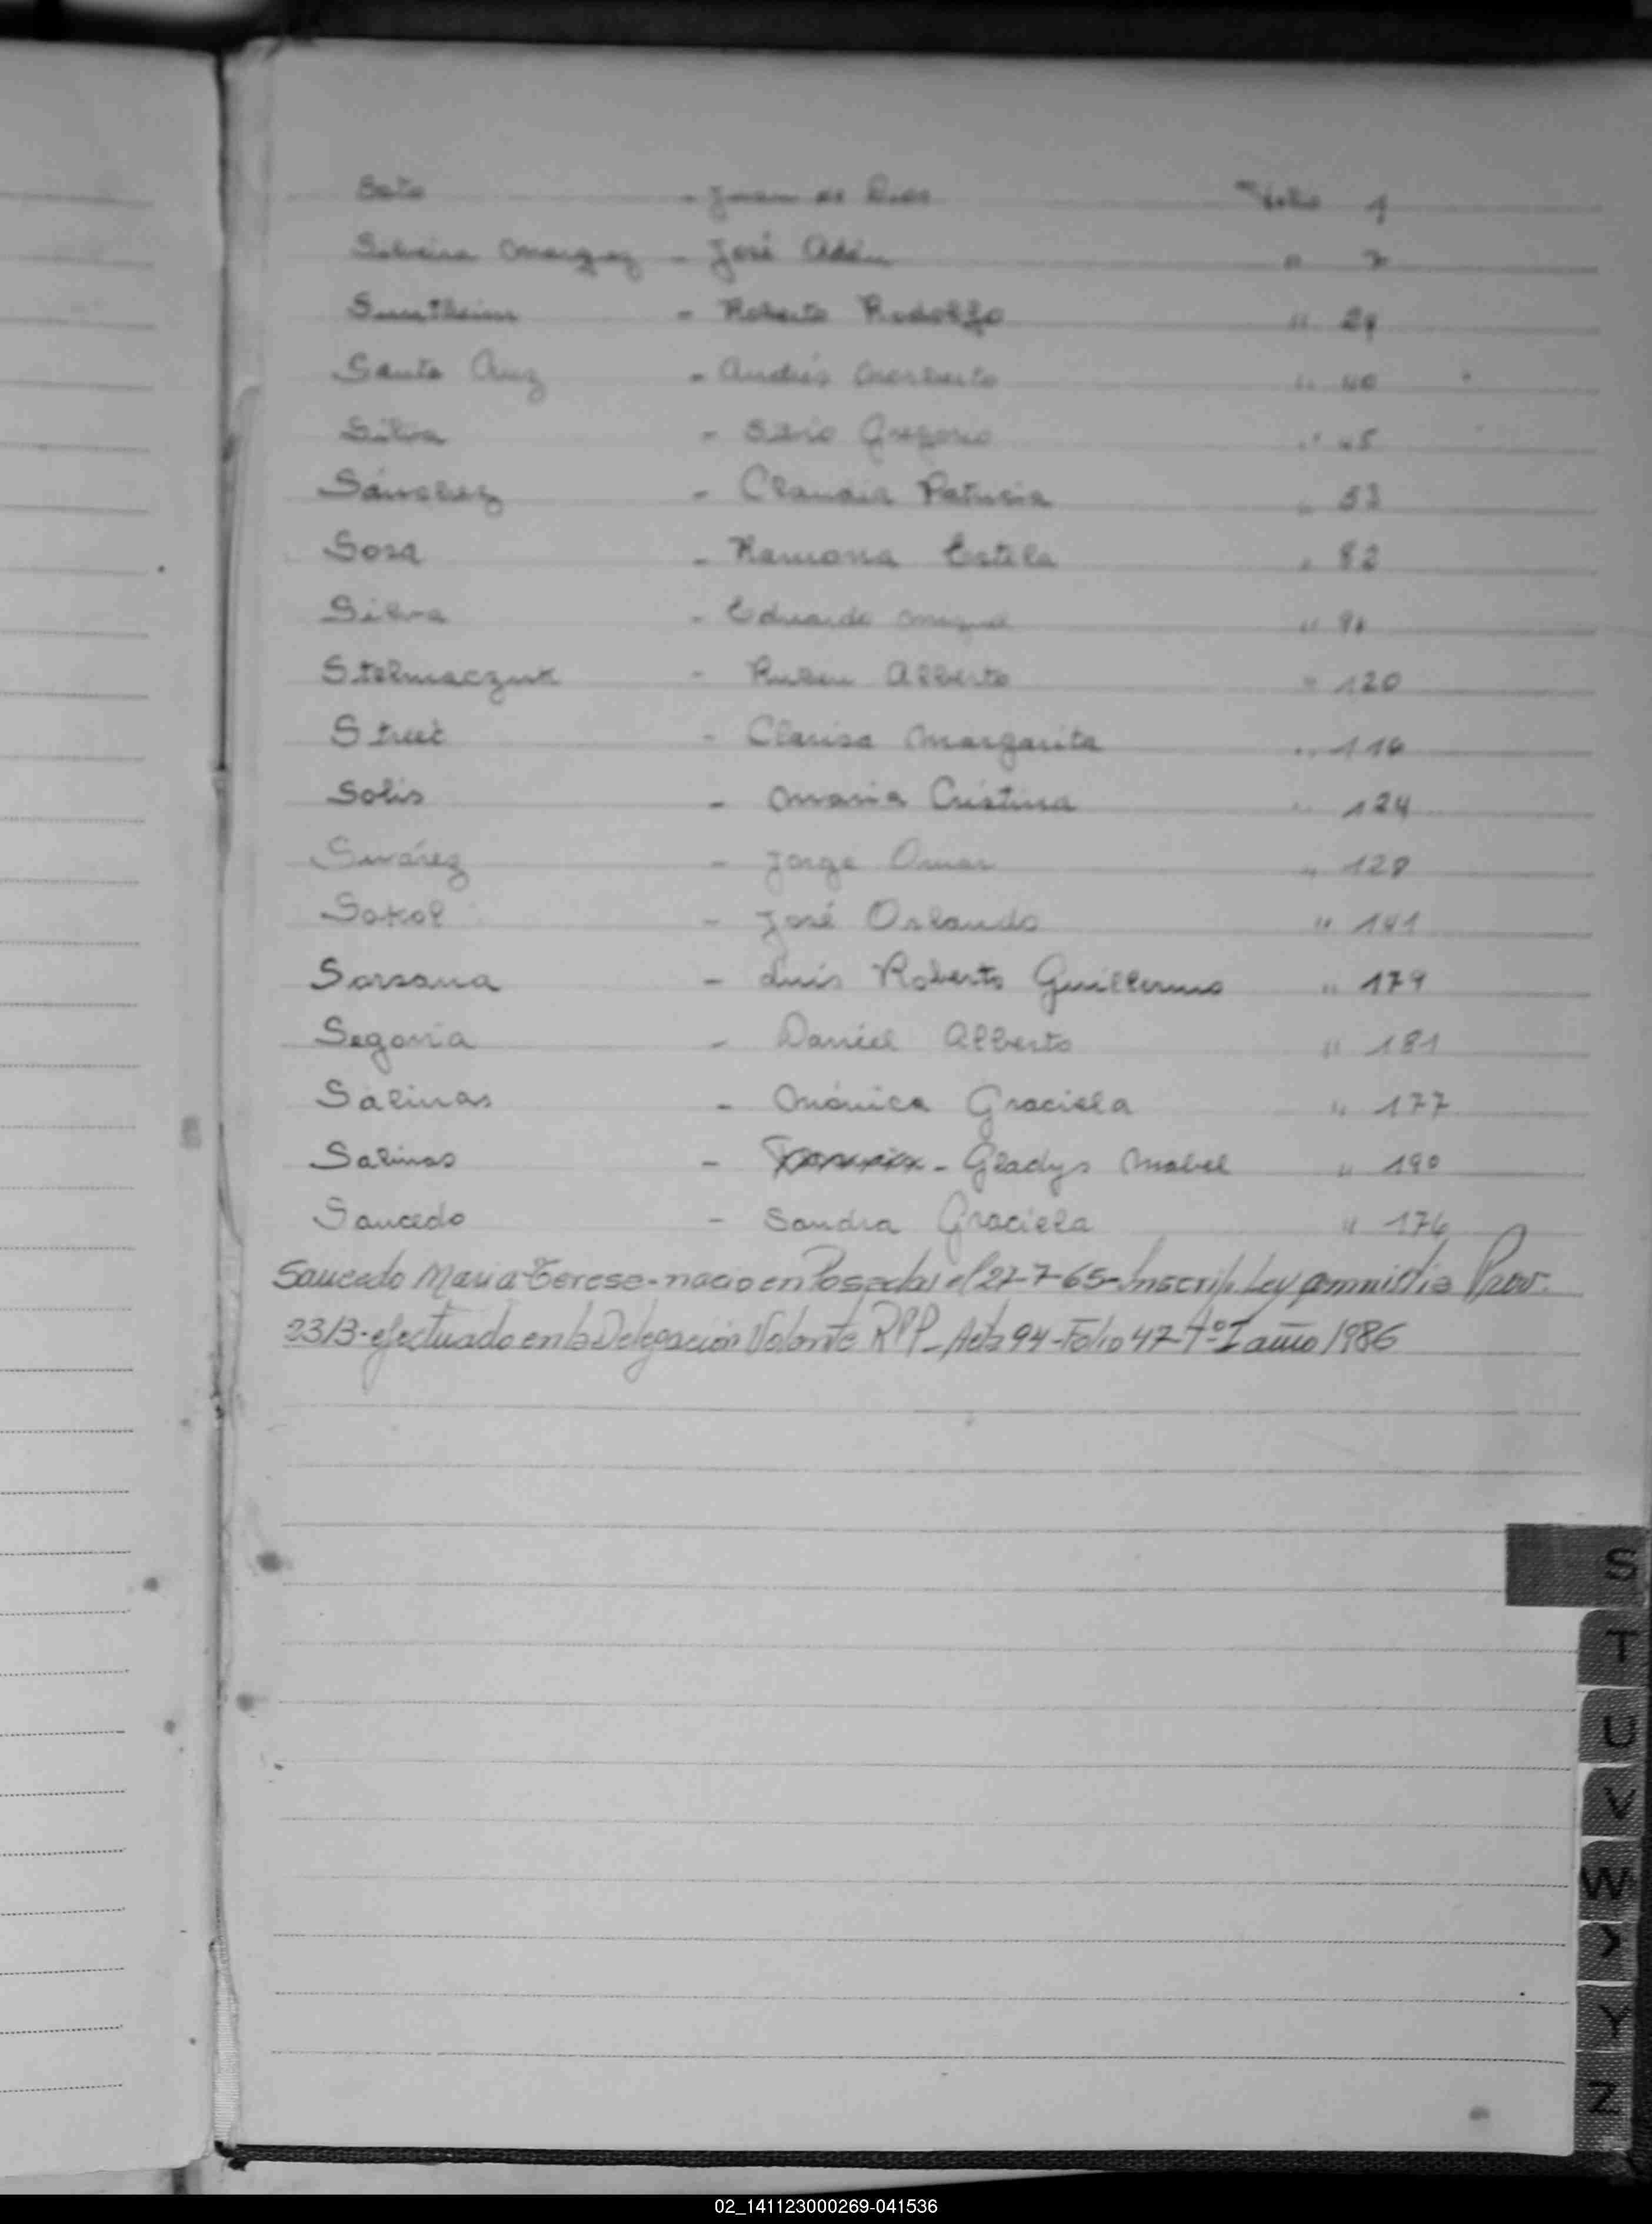 Soto - Juan de Dios Folio 1
Silveira Marquez - José Adán " 7
Suntheim - Roberto Rodolfo " 29
Santa Cruz - Andrés Norberto " 40
Silva - Silvio Gregorio " 45
Sánchez - Claudia Patricia " 53
Sosa - Ramona Estela " 82
Silva - Eduardo Miguel "
Stelmaczuk - Ruben Alberto " 120
Street - Clarisa Margarita " 116
Solis - Maria Cristina " 124
Suárez - Jorge Omar " 128
Sokol - José Orlando " 141
Sorsana - Luis Roberto Guillermo " 179
Segovia - Daniel Alberto " 181
Salinas - Mónica Graciela " 177
Salinas - - Gladys Mabel " 190
Saucedo - Sandra Graciela " 176
Saucedo Maria Teresa - nacio en Posadas el 27-7-65 - Inscrip. Ley amnistia Prov.
2313 - efectuado en la Delegación Volante RPP - Acta 94 - Folio 47 - Tº I año 1986
S
T
U
V
W
Y
Y
Z
02_141123000269-041536